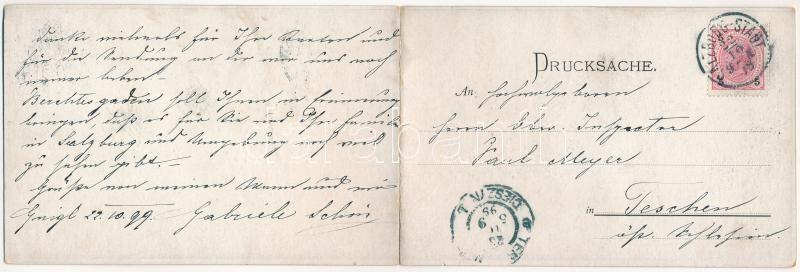 Danke vielmals für Ihre Karten und
für die Sendung an der wir uns noch
immer laben.-
Berchtesgaden soll Ihnen in Erinnerung
bringen, daß es für Sie und Ihre Familie
in Salzburg und Umgebung noch viel
zu sehen gibt.-
Grüße von meinem Mann und mir
Gnigl 22.10.99. Gabriele
DRUCKSACHE.
SALZBURG-STADT
5
An Hochwolgeboren
Herrn Ober Inspector
Paul Meyer
in Teschen
öst. Schlesien.
CIESZYN